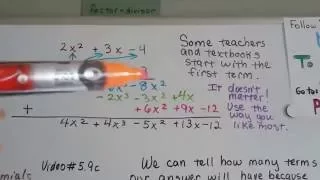 factor = divisor
2x² + 3x - 4
3
- 8x²
- 2x³ - 3x² + 4x
+ 6x² + 9x - 12
4x² + 4x³ - 5x² + 13x - 12
Some teachers
and textbooks
start with the
first term.
It doesn't
matter!
Use the
way you
like most.
Follow
To
Go to:
Video # 5.9c
We can tell how many terms
our answer will have because
mials